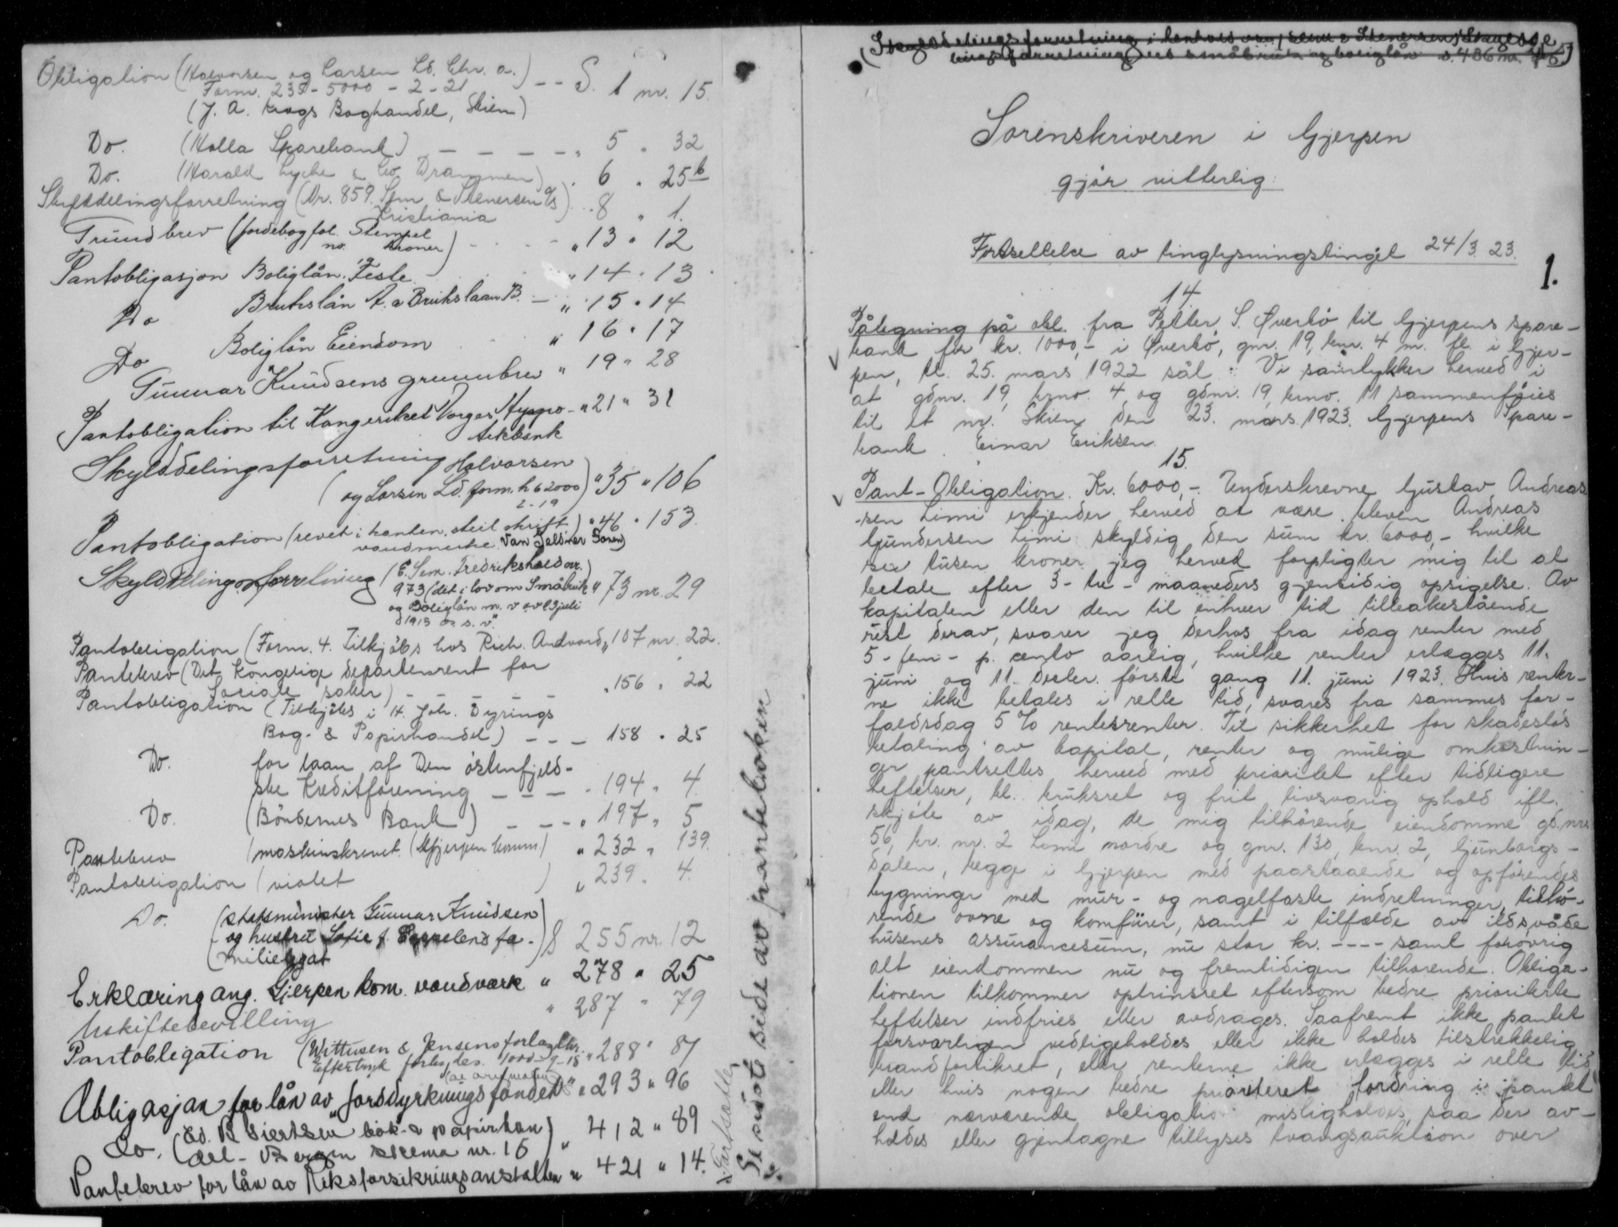 Obligation (Halvorsen og Larsen Ld. Chr. a.) -- S. 1 nr. 15.
Form. 235 - 5000 - 2 - 21
(J. A. Krogs Boghandel, Skien)
Do. (Holla Sparebank) - - - - " 5 " 32
Do. (Harald Lyche & Co. Drammen) " 6 " 25 b
Skylddelingsforretning (Nr. 859. Sem & Stenersen A/s) " 8 " 1.
Kristiania
Grundbrev (jordebog fol. Stempel
nr. kroner) - - - " 13 " 12
Pantobligasjon Boliglån. Feste " 14 " 13
Do Brukslån A. a Brukslaan B. - " 15 " 14
Do Boliglån Eiendom " 16 " 17
Gunnar Knudsens grunnbrev " 19 " 28
Pantobligation til Kongeriket Norges Hyppo- " 21 " 31
tekbank
Skylddelingsforretning Halvorsen
(og Larsen Ld. form. h 6 2000) " 35 " 106
2-19
Pantobligation (revet i kanten, steil skrift) " 46 " 153.
vandmerke Van Gelder Soren)
Skylddelingsforretning (E. Sem. Fredrikshald nr.
973 (det i lov om Småbruk " 73 nr. 29
og Boliglån m. v av 9 juli
1913 o. s. v.
Pantobligation (Form. 4. Tilkjøbs hos Rich. Andvord, " 107 nr. 22.
Pantebrev (Det Kongelige departement for
Sosiale saker) - - - - - " 156 " 22
Pantobligation (Tilkjøbs i H. Joh. Dyrings
Bog- & Papirhandel) - - - 158 " 25
Do. for laan af Den østenfjeld-
ske Kreditforening - - - - 194 " 4.
Do. (Bøndernes Bank) - - - " 197 " 5
Pantebrev (maskinskrevet (Gjerpen komm) " 232 " 139.
Pantobligation (violet ) " 239 " 4
Do. (statsminister Gunnar Knudsen
og hustru Sofie f. Cappelens fa-) S 255 nr. 12
(milielegat
Erklæring ang. Gjerpen kom. vandverk " 278 " 25
Uskiftebevilling " 287 " 79
Pantobligation (Wittusen & Jensens forlag
Eftertryk forbydes. 1000 - 9 - 18 " 288 " 87
Obligasjon for lån av "Jorddyrkningsfondet" " 293 " 96
do. (Ed. B. Giertsen bok- & papirhan) " 412 " 89
del - Bergen skema nr. 16
Pantebrev for lån av Riksforsikringsanstalten " 421 " 14.
x Fortsettes
Se siste side av panteboken
(Skylddelingsforretning i henhold til Sem & Stenersen, Skyldde
lingsforretning ved småbruk og boliglån s. 486 nr. 45)
Sorenskriveren i Gjerpen
gjør vitterlig:
Fortsettelse av tinglysningstinget 24/3. 23.
1.
14
Påtegning på obl. fra Petter S. Øverbø til Gjerpens spare-
bank for kr. 1000,- i Øverbø, gnr. 19, bnr. 4 m. fl. i Gjer-
pen, tl. 25. mars 1922 sål: Vi samtykker herved i
at gdnr. 19, brno. 4 og gdnr. 19, brno. 11 sammenføies
til et nr. Skien den 23. mars 1923. Gjerpens Spare-
bank. Einar Eriksen.
15.
Pant-Obligation. Kr. 6000,-. Underskrevne Gustav Andreas-
sen Limi erkjender herved at være bleven Andreas
Gundersen Limi skyldig den sum kr. 6000,- hvilke
sex tusen kroner jeg herved forpligter mig til at
betale efter 3- tre - maaneders gjensidig opsigelse. Av
kapitalen eller den til enhver tid tilbakestående
rest derav, svarer jeg derhos fra idag renter med
5 - fem - p. cento aarlig, hvilke renter erlægges 11.
juni og 11. desbr. første gang 11. juni 1923. Hvis renter-
ne ikke betales i rette tid, svares fra sammes for-
faldsdag 5 % rentesrenter. Til sikkerhet for skadesløs
betaling av kapital, renter og mulige omkostnin-
ger pantsettes herved med prioritet efter tidligere
heftelser, bl. bruksret og frit livsvarig ophold ifl.
skjøte av idag, de mig tilhørende eiendomme gd.nr.
56, br. nr. 2 Limi nordre og gnr. 130, bnr. 2, Gunborgs-
dalen, begge i Gjerpen med paastaaende og opførendes
bygninger med mur- og nagelfaste indretninger, tilhø-
rende ovne og komfurer, samt i tilfælde av ildsvåde
husenes assurancesum, nu stor kr. ---- samt forøvrig
alt eiendommen nu og fremtidigen tilhørende. Obliga-
tionen tilkommer optrinsret eftersom bedre prioriterte
heftelser indfries eller avdrages. Saafremt ikke pantet
forsvarligen vedligeholdes eller ikke holdes tilstrekkelig
brandforsikret, eller renterne ikke erlægges i rette tid
eller hvis nogen bedre prioriteret fordring i pantet
end nærværende obligation misligholdes, saa der av-
holdes eller gjentagne tillyses tvangsauktion over